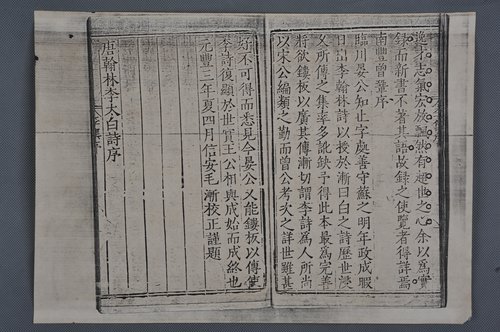 逸才志氣宏放飄然有超世之心余以為實
錄而新書不著其語故錄之使覽者得詳焉
南豐曾鞏序
臨川晏公知止字處善守蘇之明年政成暇
日出李翰林詩以授於漸曰白之詩歷世浸
久所傳之集率多訛缺予得此本最為完善
將欲鏤板以廣其傳漸切謂李詩為人所尚
以宋公編類之勤而曾公考次之詳世雖甚
好不可得而悉見今晏公又能鏤板以傳使
李詩復顯於世實三公相與成始而成終也
元豐三年夏四月信安毛漸校正謹題
唐翰林李太白詩序